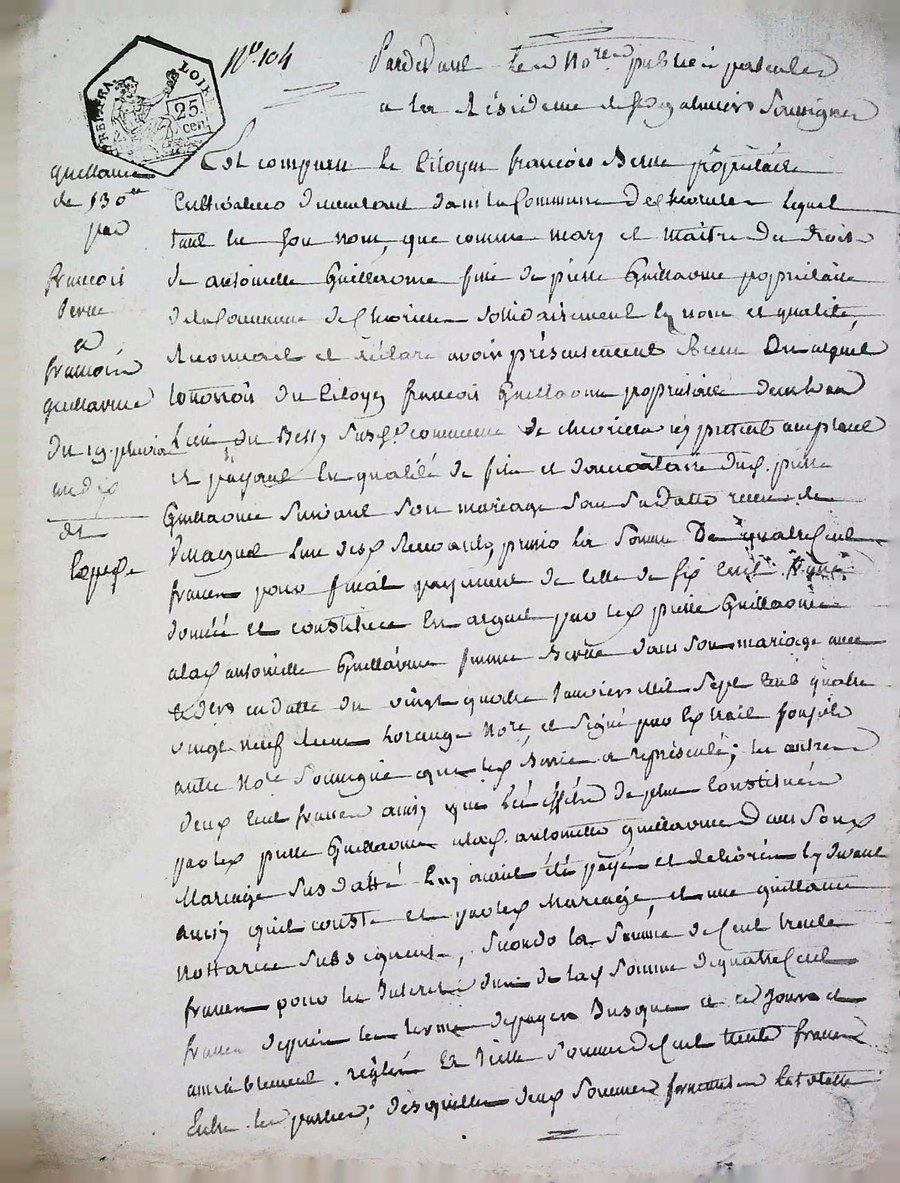 REP. FRA. LOIRE
25 cent
No. 104
Pardevant les Nores publics
a la Résidence de St galmier Soussignes
quittance
de 130
par
francois
Berne
a
francois
guillaume
du 19 pluviose
an dix
Est comparu le Citoyen francois Berne propriétaire
Cultivateur demeurant dans la Commune de chevrieres lequel
tant en son nom, que comme mary et maitre des droits
de antoinette Guillaume fille de pierre Guillaume propriétaire
de la Commune de Chevrieres solidairement es noms et qualités
Reconnait et déclare avoir présentement Receu en argent
du Citoyen francois Guillaume propriétaire demeurant
lieu du commune de chevrieres icy présent acceptant
et payant en qualité de fils et donnataire dud. pierre
Guillaume suivant son mariage sous sa datte receu
l'un des primo la somme De quatre Cent
francs pour final payement de celle de six Cent
donnée et constituée En argent par led. pierre Guillaume
a lad. antoinette Guillaume femme Berne dans son mariage avec
en datte du vingt quatre Janvier Mil Sept Cent quatre
vingt neuf receu Nore, et signé par Extrait
autre Nore Soussigné que led. Berne a représenté; les autres
deux Cent francs ainsy que les effets de plus Constitués
par led. pierre Guillaume a lad. antoinette guillaume dans son
Mariage susdatté luy avoit été payé et délivrés
ainsy qu'il conste et par led. Mariage et une quittance
Nottariée subsequente, Secondo la somme de Cent trente
francs pour les Interets de lad. somme de quatre Cent
francs depuis les termes de payer jusques a ce jour et
amiablement réglés Et Icelle somme de Cent trente francs
Entre les parties; desquelles deux sommes la totalle